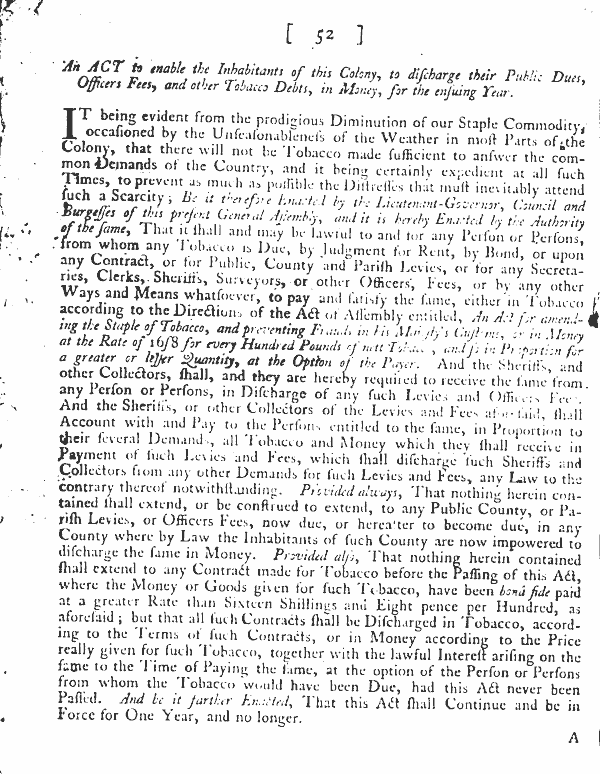 [ 52 ]
An ACT to enable the Inhabitants of this Colony, to diſcharge their Public Dues,
Officers Fees, and other Tobacco Debts, in Money, for the enſuing Year.
IT being evident from the prodigious Diminution of our Staple Commodity,
occaſioned by the Unſeaſonableneſs of the Weather in moſt Parts of the
Colony, that there will not be Tobacco made ſufficient to anſwer the com-
mon Demands of the Country, and it being certainly expedient at all ſuch
Times, to prevent as much as poſſible the Diſtreſſes that muſt inevitably attend
ſuch a Scarcity; Be it therefore Enacted by the Lieutenant-Governor, Council and
Burgeſſes of this preſent General Aſſembly, and it is hereby Enacted by the Authority
of the ſame, That it ſhall and may be lawful to and for any Perſon or Perſons,
from whom any Tobacco is Due, by Judgment for Rent, by Bond, or upon
any Contract, or for Public, County and Pariſh Levies, or for any Secreta-
ries, Clerks, Sheriffs, Surveyors, or other Officers, Fees, or by any other
Ways and Means whatſoever, to pay and ſatisfy the ſame, either in Tobacco
according to the Directions of the Act of Aſſembly entitled, An Act for amend-
ing the Staple of Tobacco, and preventing Frauds in His Customs, or in Money
at the Rate of 16ſ8 for every Hundred Pounds of nett and ſo in Proportion for
a greater or leſſer Quantity, at the Option of the Payer. And the Sheriffs, and
other Collectors, ſhall, and they are hereby required to receive the ſame from
any Perſon or Perſons, in Diſcharge of any ſuch Levies and Officers Fees.
And the Sheriffs, or other Collectors of the Levies and Fees aforeſaid, ſhall
Account with and Pay to the Perſons entitled to the ſame, in Proportion to
their ſeveral Demands, all Tobacco and Money which they ſhall receive in
Payment of ſuch Levies and Fees, which ſhall diſcharge ſuch Sheriffs and
Collectors from any other Demands for ſuch Levies and Fees, any Law to the
contrary thereof notwithſtanding. Provided always, That nothing herein con-
tained ſhall extend, or be conſtrued to extend, to any Public County, or Pa-
riſh Levies, or Officers Fees, now due, or hereafter to become due, in any
County where by Law the Inhabitants of ſuch County are now impowered to
diſcharge the ſame in Money. Provided alſo, That nothing herein contained
ſhall extend to any Contract made for Tobacco before the Paſſing of this Act,
where the Money or Goods given for ſuch Tobacco, have been bonâ fide paid
at a greater Rate than Sixteen Shillings and Eight pence per Hundred, as
aforeſaid; but that all ſuch Contracts ſhall be Diſcharged in Tobacco, accord-
ing to the Terms of ſuch Contracts, or in Money according to the Price
really given for ſuch Tobacco, together with the lawful Intereſt ariſing on the
ſame to the Time of Paying the ſame, at the option of the Perſon or Perſons
from whom the Tobacco would have been Due, had this Act never been
Paſſed. And be it farther Enacted, That this Act ſhall Continue and be in
Force for One Year, and no longer.
A